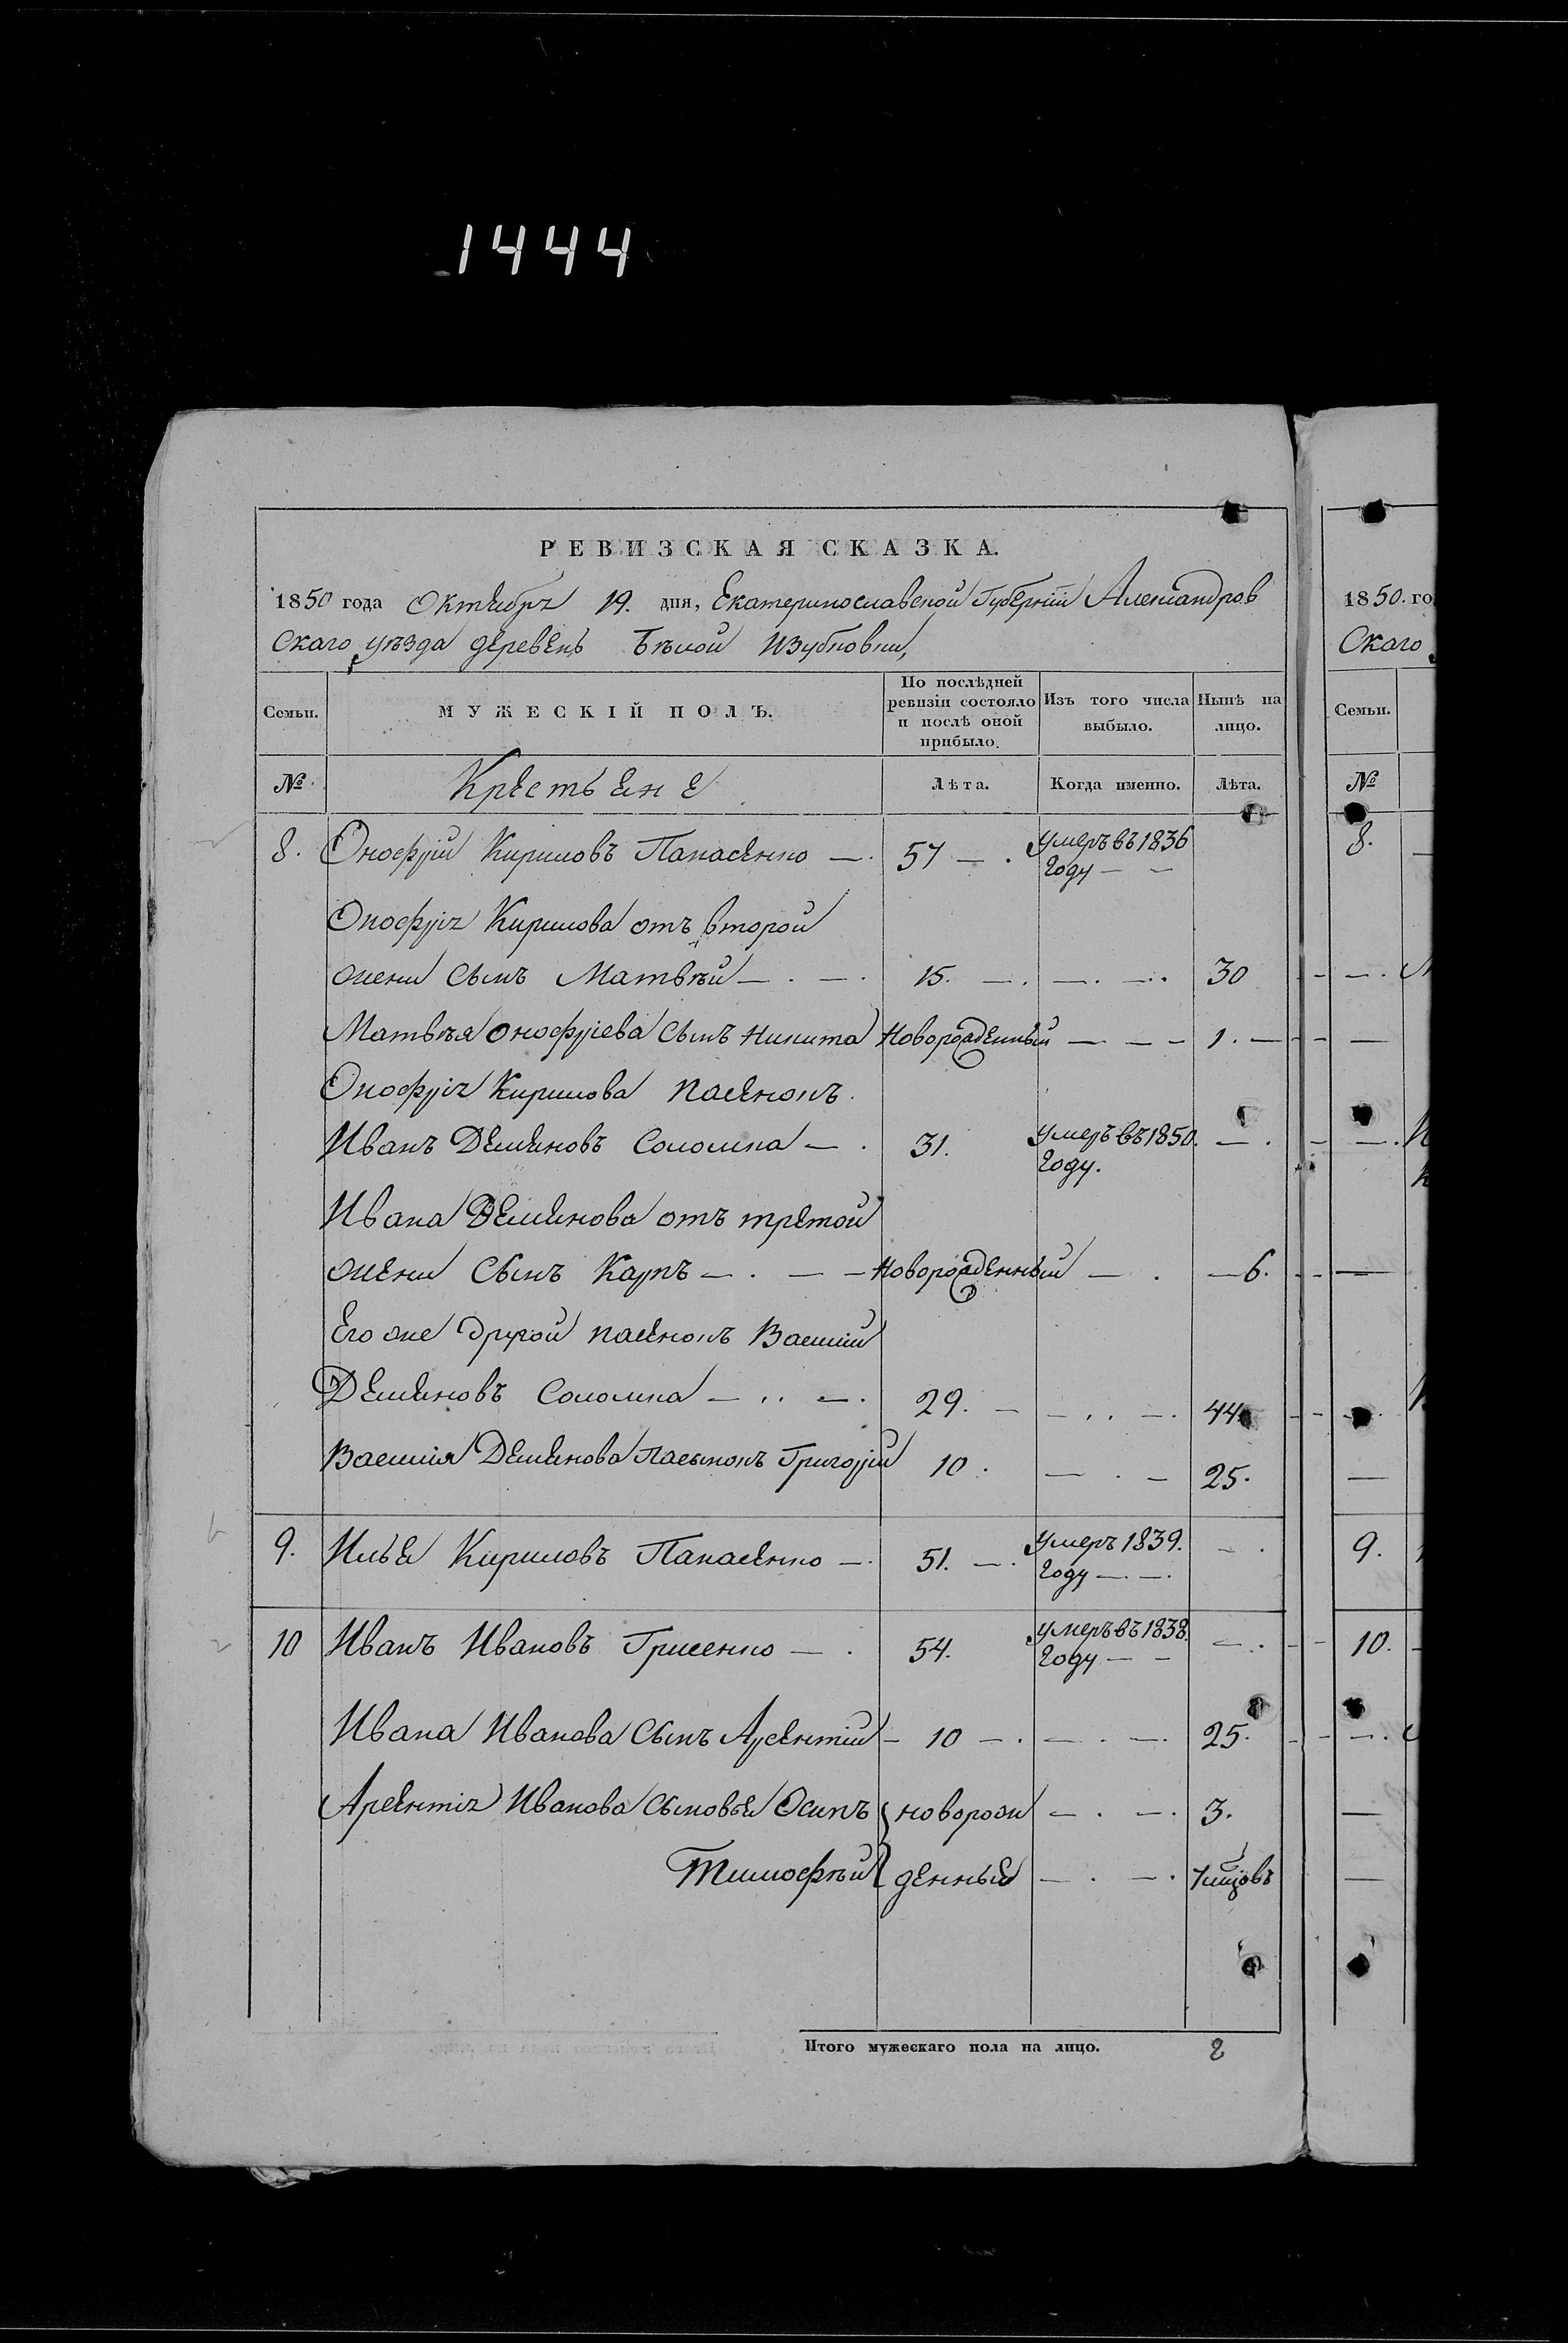 1444
РЕВИЗСКАЯ СКАЗКА.
1850 года Октября 19. дня, Екатеринославской Губерніи Александров
скаго уѣзда деревень Бѣлой Изубковки,
Семьи. МУЖЕСКІЙ ПОЛЪ. По послѣдней ревизіи состояло и послѣ оной прибыло. Изъ того числа выбыло. Нынѣ на лицо.
№ Крестьяне Лѣта. Когда именно. Лѣта.
8. Онофрій Кириловъ Панасенко — . 57 — . Умеръ въ 1836 году — —
Онофрія Кирилова отъ второй
жени сынъ Матвѣй — . — . 15. — . — . — . 30
Матвѣя Онофріева сынъ Никита Новорожденный — — — 1. —
Онофрія Кирилова пасенокъ
Иванъ Демяновъ Соломка — . 31. Умеръ въ 1850. году. — .
Ивана Демянова отъ третой
жени сынъ Карпъ — . — — Новорожденный — . — 6.
Его же другой пасенокъ Василій
Демяновъ Соломка — . . — . 29. — — . . — . 44
Василія Демянова пасынокъ Григорій 10. — . — 25.
9. Илья Кириловъ Панасенко — . 51. — . Умеръ 1839. году — . — . — .
10 Иванъ Ивановъ Грисенко — . 54. Умеръ въ 1838. году — — — .
Ивана Иванова сынъ Арсентій — 10 — . — . — . 25.
Арсентія Иванова сыновья Осипъ { новорож — . — . 3.
Тимофѣй { денные — . — . 7 мцовъ
Итого мужескаго пола на лицо. 8
1850. го
скаго
Семьи.
№
8.
9.
10.